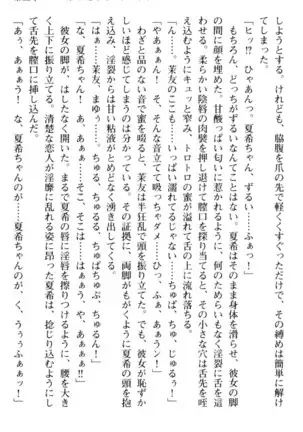 しようとする。けれども、脇腹を爪の先で軽くくすぐっただけで、その締めは簡単に解け
てしまった。
「ヒッ!?　ひゃあんっ、夏希ちゃん、ずるい……ふぁっ！」
もちろん、どっちがずるいなんてことはない。夏希はそのまま身体を滑らせ、彼女の脚
の間に顔を埋めた。甘酸っぱい匂いに惹かれるように、何のためらいもなく淫裂に舌を這
わせる。柔らかい陰唇の肉襞を押し退けて膣口を探り当てると、その小さな穴は舌先を咥
え込むようにキュッと窄み、トロトロの蜜が溢れて舌の上に流れ落ちる。
「ん……茉友のここも……いっぱい濡れてるじゃない……ちゅぱ、ちゅ、じゅるっ」
「やぁぁぁん！　そ、そんな音立てて吸っちゃダメ……ひあっ、あぁぁ……ふぁぁ！」
わざと品のない音で蜜を啜ると、茉友は半狂乱で頭を振り乱す。でも、彼女が恥ずか
しいほど感じてしまうのは分かっている。その証拠に、両脚がもがくように夏希の頭を抱
え込み、淫裂からは甘い粘液がとめどなく湧き出してくる。
「はぁ……茉友、まゆぅ……ちゅる、ちゅるる、ちゅぱちゅぷ、ちゅるん！」
「あぁぁっ、夏希ちゃん！　あ、あぁぁ……そこ、そこは……はぁぅ、あぁぁぁ～ッ！」
彼女の脚が、はしたなく開いた。まるで夏希の唇に淫唇を擦りつけるように、腰を大き
くうねらせる。清楚な恋人が淫靡に乱れる姿に昂った夏希は、捻じり込むようにし
て舌先を膣口に挿し込んだ。
「あぅ、あぁぁぅ！　な、夏希ちゃんのが……夏希ちゃんのが、く、うぅぅふぁぁッ！」